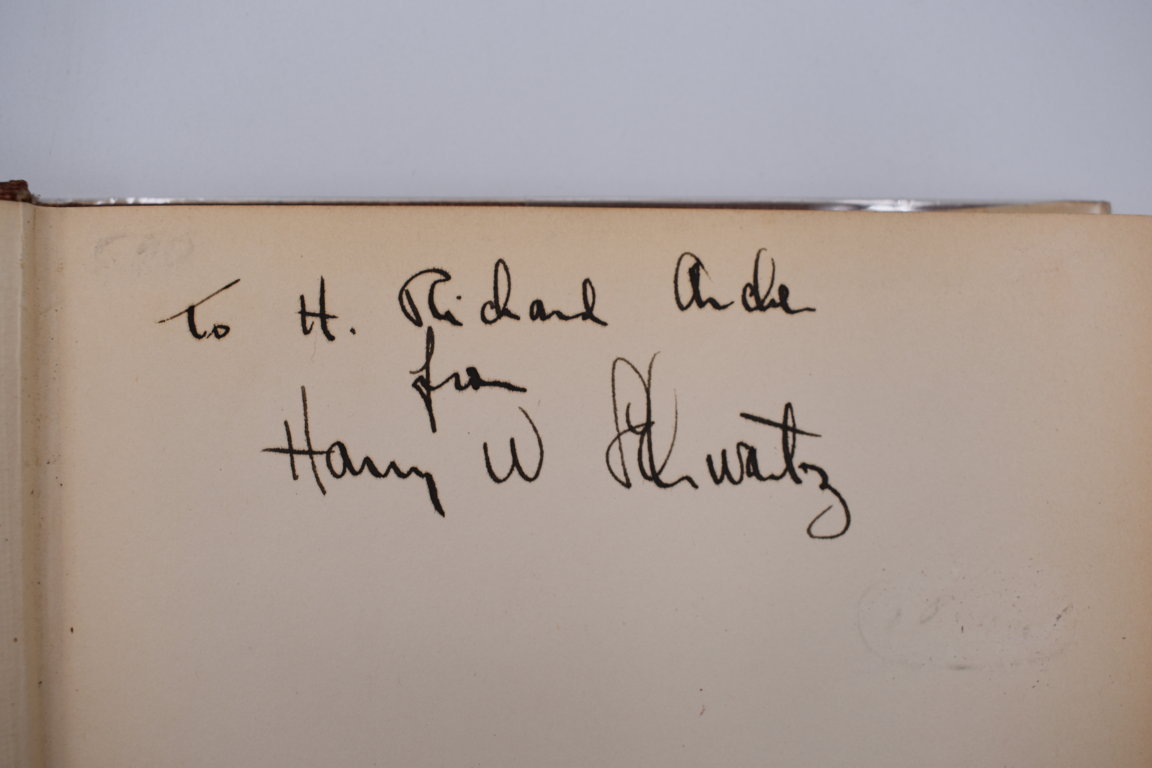 To H. Richard Archer
from
Harry W Schwartz